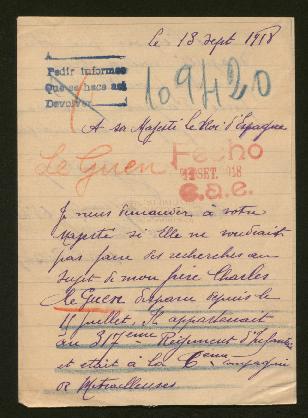 le 13 Sept 1918
A
Pedir informes
Que se haca así
Devolver
109420
A sa Majesté le Roi d'Espagne
Le Guen
Fecho
SET. 918
c.a.e.
Je viens demander à votre
Majesté si Elle ne voudrait
pas faire des recherches au
sujet de mon frère Charles
Le Guen disparu depuis le
Juillet, Il appartenait
au 317eme Régiment d'Infanterie
et était à la 6eme Compagnie
de Mitrailleuses